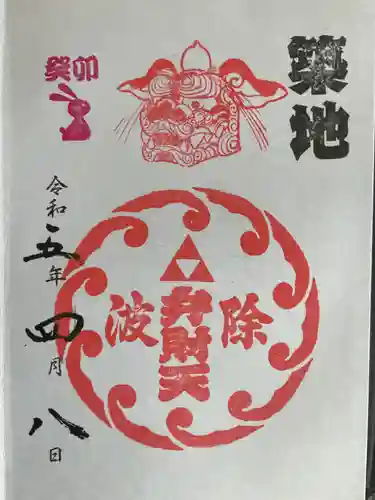 築地
癸卯
除
弁財天
波
令和五年四月八日